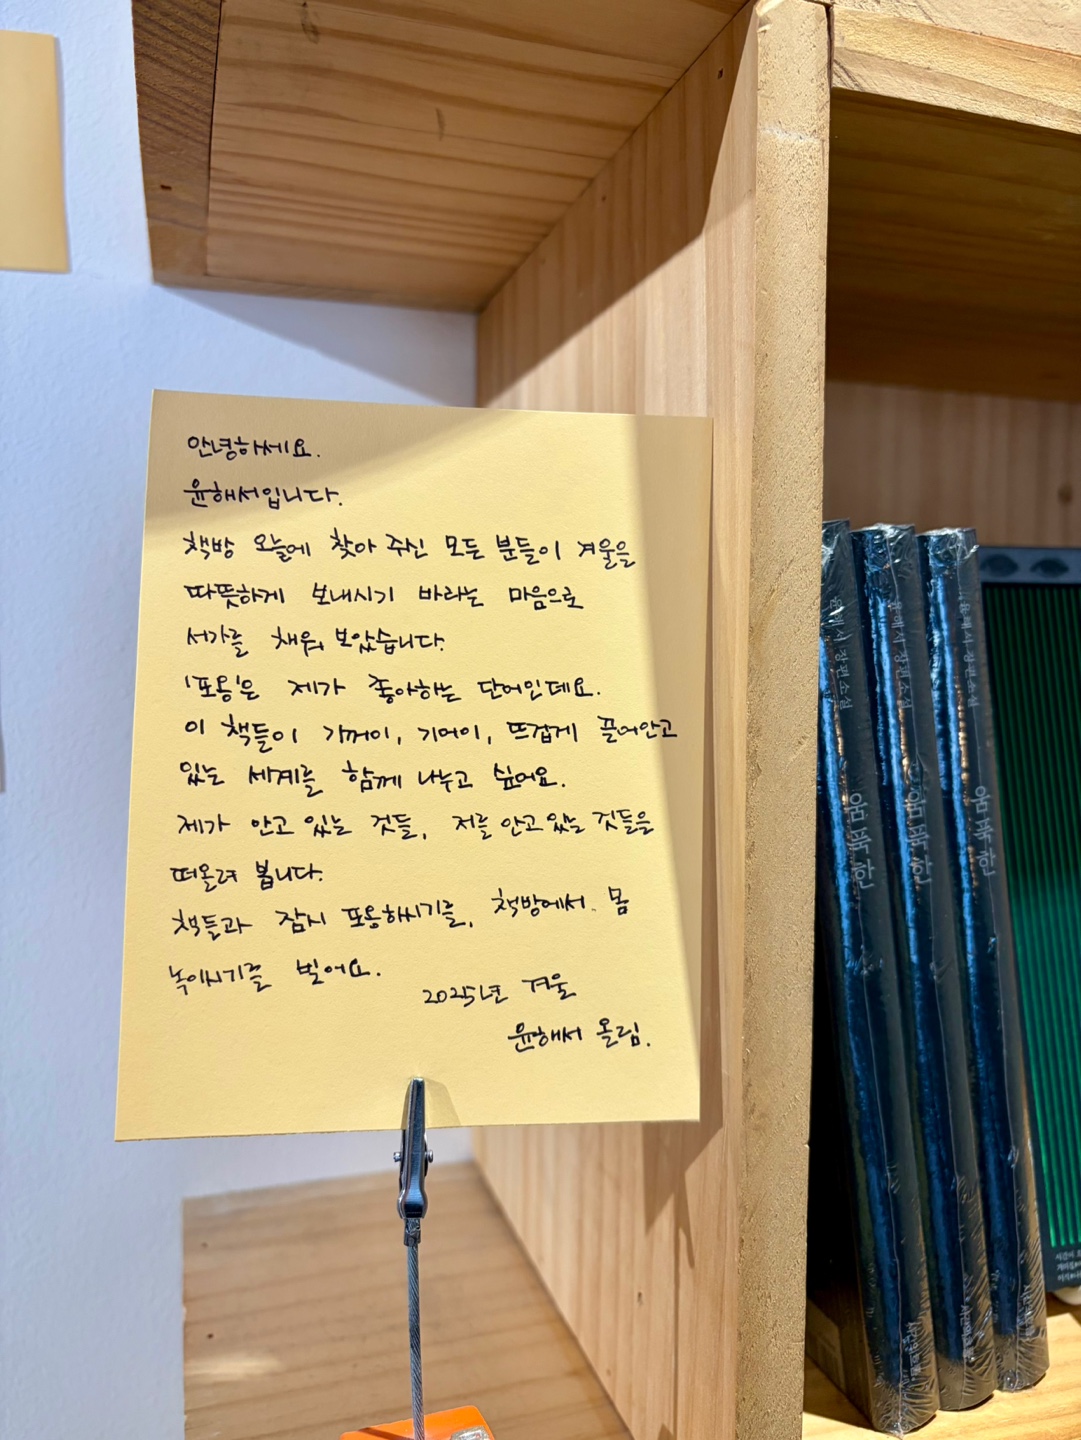 안녕하세요.
윤해서입니다.
책방 오늘에 찾아 주신 모든 분들이 겨울을
따뜻하게 보내시기 바라는 마음으로
서가를 채워 보았습니다.
'포옹'은 제가 좋아하는 단어인데요.
이 책들이 가까이, 기어이, 뜨겁게 끌어안고
있는 세계를 함께 나누고 싶어요.
제가 안고 있는 것들, 저를 안고 있는 것들을
떠올려 봅니다.
책들과 잠시 포옹하시기를, 책방에서 몸
녹이시기를 빌어요.
2025년 겨울
윤해서 올림.
윤해서 장편소설
움푹한
윤해서 장편소설
움푹한
윤해서 장편소설
움푹한